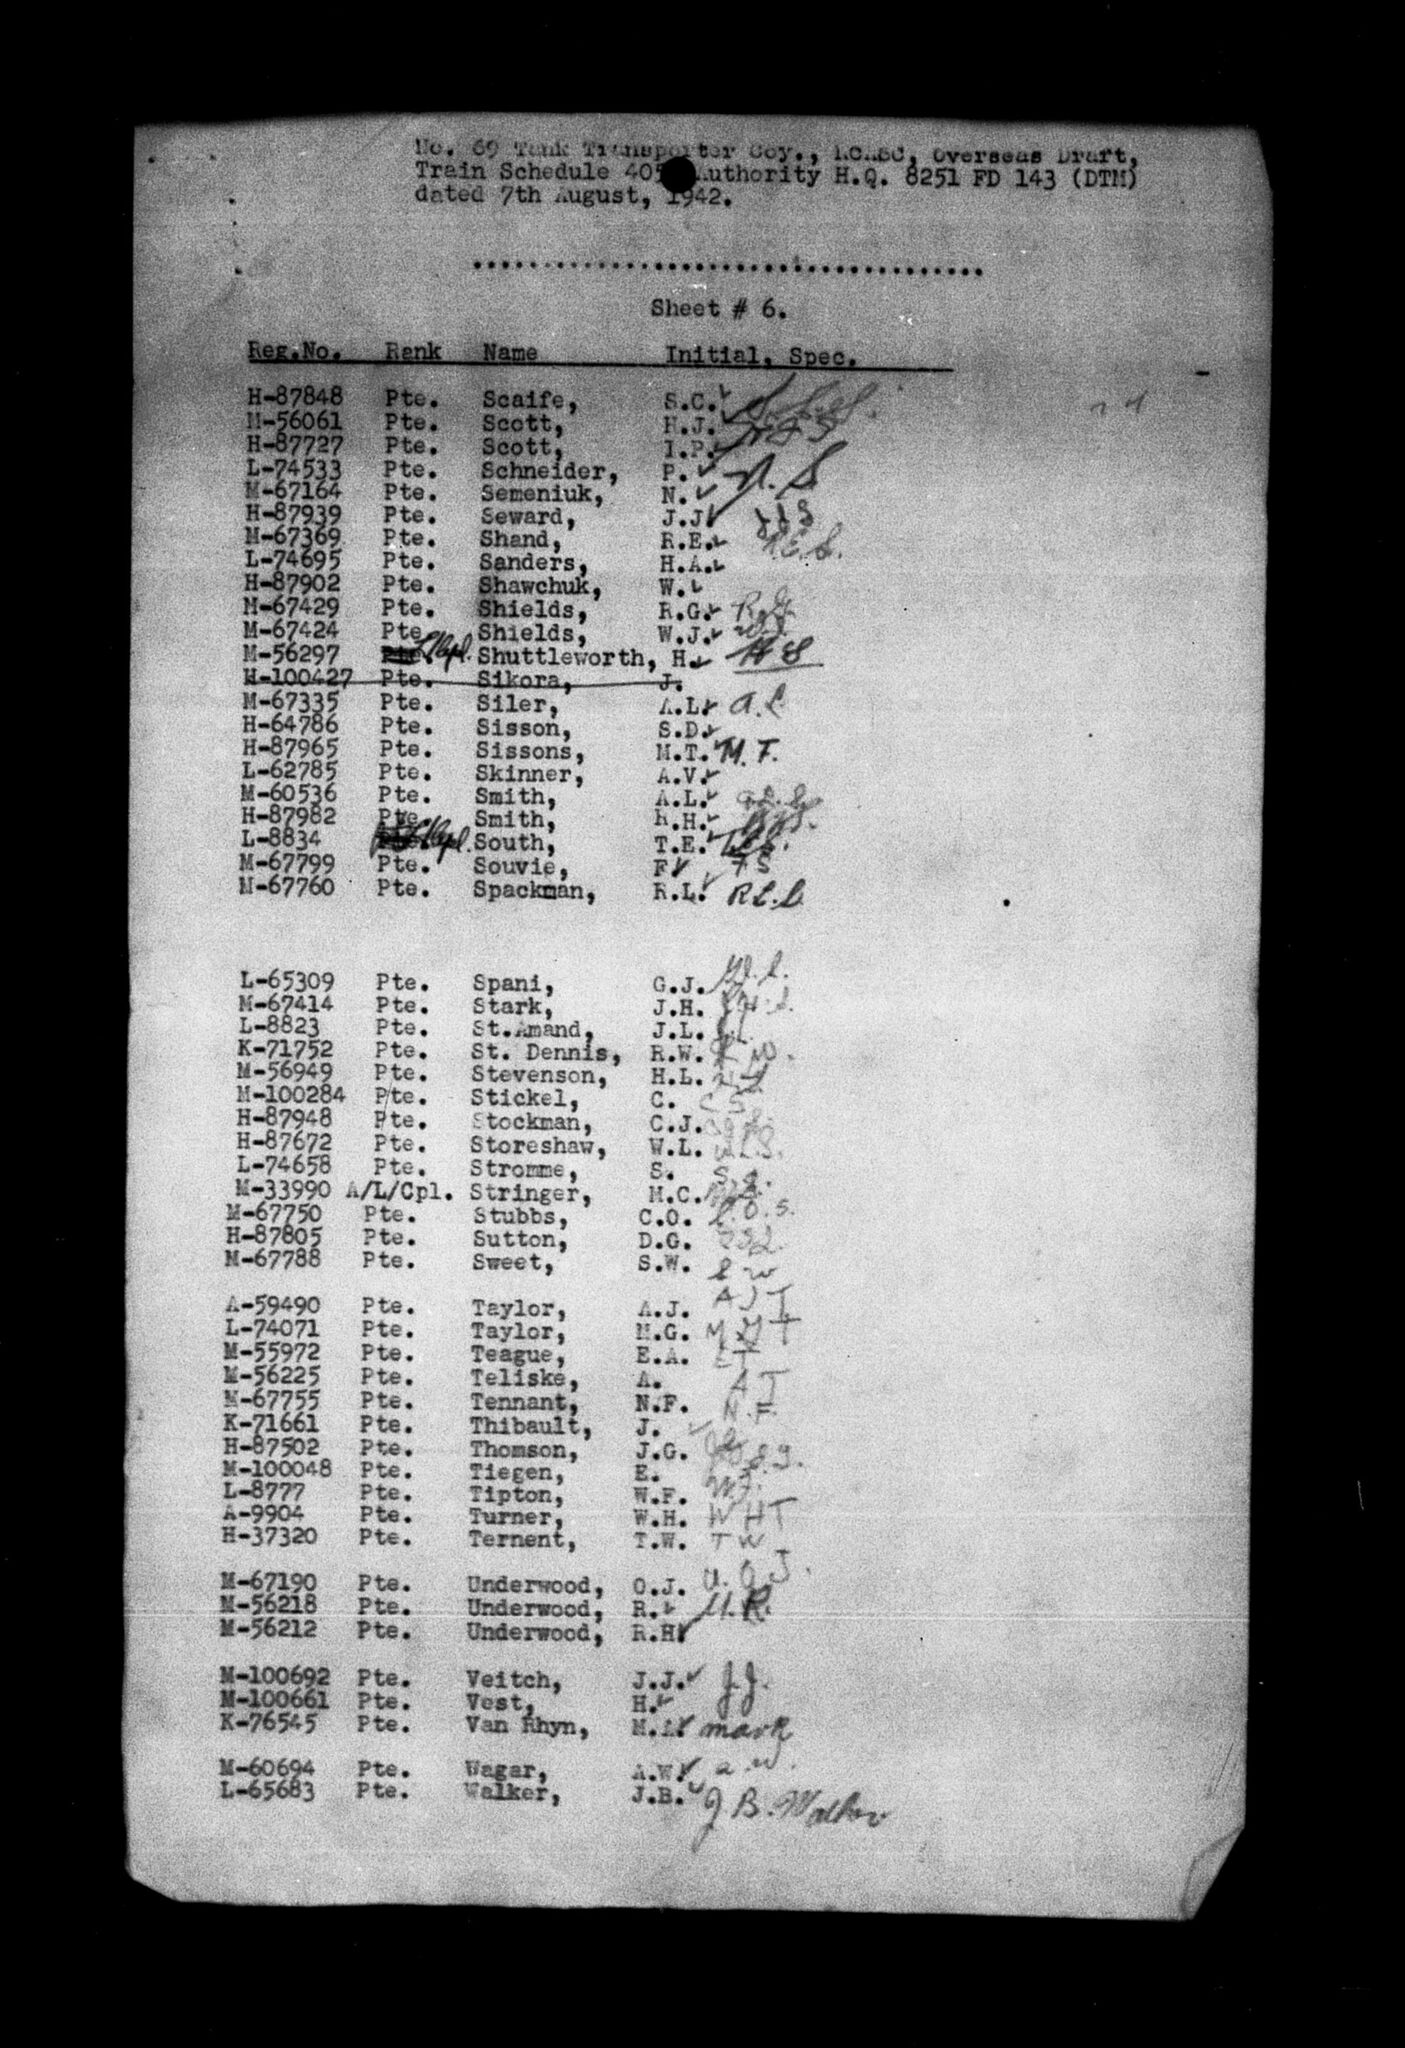 No. 69 Tank Transporter Coy., RCASC, Overseas Draft,
Train Schedule 405 Authority H.Q. 8251 FD 143 (DTM)
dated 7th August, 1942.
Sheet # 6.
Reg.No. Rank Name Initial, Spec.
H-87848 Pte. Scaife, S.C.
M-56061 Pte. Scott, H.J. HJS
H-87727 Pte. Scott, I.P.
L-74533 Pte. Schneider, P.
M-67164 Pte. Semeniuk, N. N. S
H-87939 Pte. Seward, J.J. JJS
M-67369 Pte. Shand, R.E. R.E.S.
L-74695 Pte. Sanders, H.A.
H-87902 Pte. Shawchuk, W.
M-67429 Pte. Shields, R.G. R.G.
M-67424 Pte. Shields, W.J. W.J.
M-56297 Pte. L/Cpl. Shuttleworth, H. HS
H-100427 Pte. Sikora, J.
M-67335 Pte. Siler, A.L. A.L
H-64786 Pte. Sisson, S.D.
H-87965 Pte. Sissons, M.T. M.T.
L-62785 Pte. Skinner, A.V.
M-60536 Pte. Smith, A.L. a.L.S
H-87982 Pte. Smith, R.H.
L-8834 L/Cpl. South, T.E. T.E.S.
M-67799 Pte. Souvie, F. FS
M-67760 Pte. Spackman, R.L. R.L.S.
L-65309 Pte. Spani, G.J.
M-67414 Pte. Stark, J.H. J.H.S
L-8823 Pte. St.Amand, J.L.
K-71752 Pte. St. Dennis, R.W. R W.
M-56949 Pte. Stevenson, H.L. HL
M-100284 Pte. Stickel, C. C S
H-87948 Pte. Stockman, C.J.
H-87672 Pte. Storeshaw, W.L. W.L.S.
L-74658 Pte. Stromme, S. S.S.
M-33990 A/L/Cpl. Stringer, M.C.
M-67750 Pte. Stubbs, C.O. C.O.S.
H-87805 Pte. Sutton, D.G.
M-67788 Pte. Sweet, S.W. S W
A-59490 Pte. Taylor, A.J. AJT
L-74071 Pte. Taylor, M.G. MGT
M-55972 Pte. Teague, E.A. ET
M-56225 Pte. Teliske, A. AT
M-67755 Pte. Tennant, N.F. N.F.
K-71661 Pte. Thibault, J.
H-87502 Pte. Thomson, J.G. JG
M-100048 Pte. Tiegen, E.
L-8777 Pte. Tipton, W.F. W.F.
A-9904 Pte. Turner, W.H. WHT
H-37320 Pte. Ternent, T.W. TW
M-67190 Pte. Underwood, O.J. U.O.J.
M-56218 Pte. Underwood, R. U.R.
M-56212 Pte. Underwood, R.H.
M-100692 Pte. Veitch, J.J. J.J.
M-100661 Pte. Vest, H.
K-76545 Pte. Van Rhyn, M.A. mavR
M-60694 Pte. Wagar, A.W. a.w.
L-65683 Pte. Walker, J.B. J B. Walker